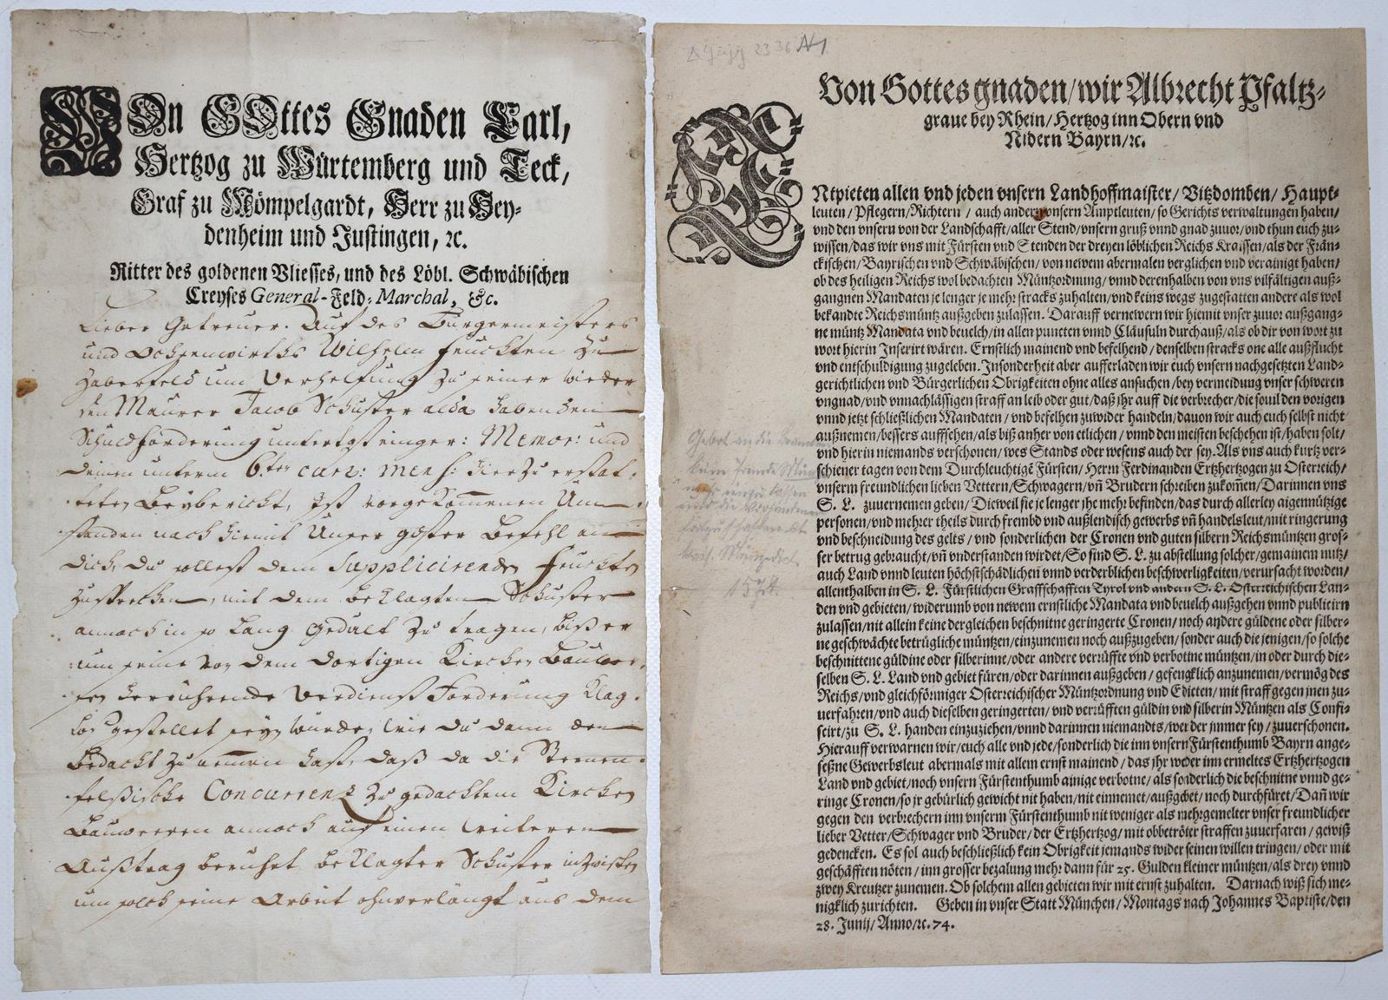 VOn GOttes Gnaden Carl,
Hertzog zu Würtemberg und Teck,
Graf zu Mömpelgardt, Herr zu Hey-
denheim und Justingen, ꝛc.
Ritter des goldenen Vliesses, und des Löbl. Schwäbischen
Creyses General-Feld-Marchal, &c.
Lieber Getreuer. Auf des Burgermeisters
und Ochsenwirths Wilhelm Feuchten zu
Haberfeld um Verhelfung zu seiner wieder
den Maurer Jacob Schuster alda habenden
Schuldforderung unterthst eingeg: Memor: und
Deinen unterm 6.ten curr: mens: hierzu erstat-
teten Beybericht, Ist vorgekommenen Um-
ständen nach hiemit Unser gdster Befehl an
Dich, Du sollest dem Supplicirenden Feuchten
zusprechen, mit dem beklagten Schuster
annoch in so lang Gedult zu tragen, biß er
um seine von dem dortigen Kirchen Bauwe-
sen herrührende Verdienst Forderung klag-
loß gestellet seyn würde, wie Du dann den
Bedacht zu nemmen hast, daß da die
Concurrenz zu gedachtem Kirchen
Bauweesen annoch auf einem weiteren
Außtrag beruhet beklagter Schuster inzwischen
um solch seine Arbeit ohnverlängt aus dem
Von Gottes gnaden/wir Albrecht Pfaltz-
graue bey Rhein/Hertzog inn Obern vnd
Nidern Bayrn/ꝛc.
ENtpieten allen vnd jeden vnsern Landhoffmaister/Vitzdomben/Haupt-
leuten/Pflegern/Richtern/auch andern vnsern Amptleuten/so Gerichts verwaltungen haben/
vnd den vnsern von der Landschafft/aller Stend/vnsern gruß vnnd gnad zuuor/vnd thun euch zu-
wissen/das wir vns mit Fürsten vnd Stenden der dreyen löblichen Reichs Kraissen/als der Frän-
ckischen/Bayrischen vnd Schwäbischen/von newem abermalen verglichen vnd verainigt haben/
ob des heiligen Reichs wol bedachten Müntzordnung/vnnd derenhalben von vns vilfältigen auß-
gangnen Mandaten je lenger je mehr stracks zuhalten/vnd keins wegs zugestatten andere als wol
bekandte Reichsmüntz außgeben zulassen. Darauff vernewern wir hiemit vnser zuuor außgang-
ne müntz Mandata vnd beuelch/in allen puncten vnnd Cläusuln durchauß/als ob dir von wort zu
wort hierin Inserirt wären. Ernstlich mainend vnd befelhend/denselben stracks one alle außflucht
vnd entschuldigung zugeleben. Insonderheit aber aufferladen wir euch vnsern nachgesetzten Land-
gerichtlichen vnd Bürgerlichen Obrigkeiten ohne alles ansuchen/bey vermeidung vnser schweren
vngnad/vnd vnnachlässigen straff an leib oder gut/daß jhr auff die verbrecher/die souil den vorigen
vnnd jetzt schließlichen Mandaten/vnd befelhen zuwider handeln/dauon wir auch euch selbst nicht
außnemen/bessers auffsehen/als biß anher von etlichen/vnnd den meisten beschehen ist/haben solt/
vnd hierin niemands verschonen/wes Stands oder wesens auch der sey. Als vns auch kurtz ver-
schiener tagen von dem Durchleuchtigē Fürsten/Herrn Ferdinanden Ertzhertzogen zu Osterreich/
vnserm freundlichen lieben Vettern/Schwagern/vñ Brudern schreiben zukom̃en/Darinnen vns
S. L. zuuernemen geben/Dieweil sie je lenger jhe mehr befinden/das durch allerley aigennützige
personen/vnd mehrer theils durch frembd vnd außlendisch gewerbs vñ handelsleut/mit ringerung
vnd beschneidung des gelts/vnd sonderlichen der Cronen vnd guten silbern Reichsmüntzen gros-
ser betrug gebraucht/vñ vnderstanden wirdet/So sind S. L. zu abstellung solcher/gemainem nutz/
auch Land vnnd leuten höchstschädlichen vnnd verderblichen beschwerligkeiten/verursacht worden/
allenthalben in S. L. Fürstlichen Graffschafften Tyrol vnd andern S. L. Osterreichischen Lan-
den vnd gebieten/widerumb von newem ernstliche Mandata vnd beuelch außgehen vnnd publicirn
zulassen/nit allein keine dergleichen beschnitne geringerte Cronen/noch andere güldene oder silber-
ne geschwächte betrügliche müntzen/einzunemen noch außzugeben/sonder auch die jenigen/so solche
beschnittene güldine oder silberinne/oder andere verrüffte vnd verbotine müntzen/in oder durch die-
selben S. L. Land vnd gebiet füren/oder darinnen außgeben/gefengklich anzunemen/vermög des
Reichs/vnd gleichförmiger Osterreichischer Müntzordnung vnd Edicten/mit straff gegen jnen zu-
uerfahren/vnd auch dieselben geringerten/vnd verrüfften güldin vnd silberin Müntzen als Confi-
scirt/zu S. L. handen einzuziehen/vnnd darinnen niemandts/wer der jmmer sey/zuuerschonen.
Hierauff verwarnen wir/euch alle vnd jede/sonderlich die inn vnsern Fürstenthumb Bayrn ange-
seßne Gewerbsleut abermals mit allem ernst mainend/das jhr weder inn ermeltes Ertzhertzogen
Land vnd gebiet/noch vnsern Fürstenthumb ainige verbotne/als sonderlich die beschnitne vnnd ge-
ringe Cronen/so jr gebürlich gewicht nit haben/nit einnemet/außgebet/noch durchfüret/Dañ wir
gegen den verbrechern inn vnserm Fürstenthumb nit weniger als mehrgemelter vnser freundlicher
lieber Vetter/Schwager vnd Bruder/der Ertzhertzog/mit obbetröter straffen zuuerfaren/gewiß
gedencken. Es sol auch beschließlich kein Obrigkeit jemands wider seinen willen tringen/oder mit
geschäfften nöten/inn grosser bezalung mehr dann für 25. Gulden kleiner müntzen/als drey vnnd
zwey Kreutzer zunemen. Ob solchem allen gebieten wir mit ernst zuhalten. Darnach wiß sich me-
nigklich zurichten. Geben in vnser Statt München/Montags nach Johannes Baptiste/den
28. Junij/Anno/ꝛc. 74.
Gebot an die
1574.